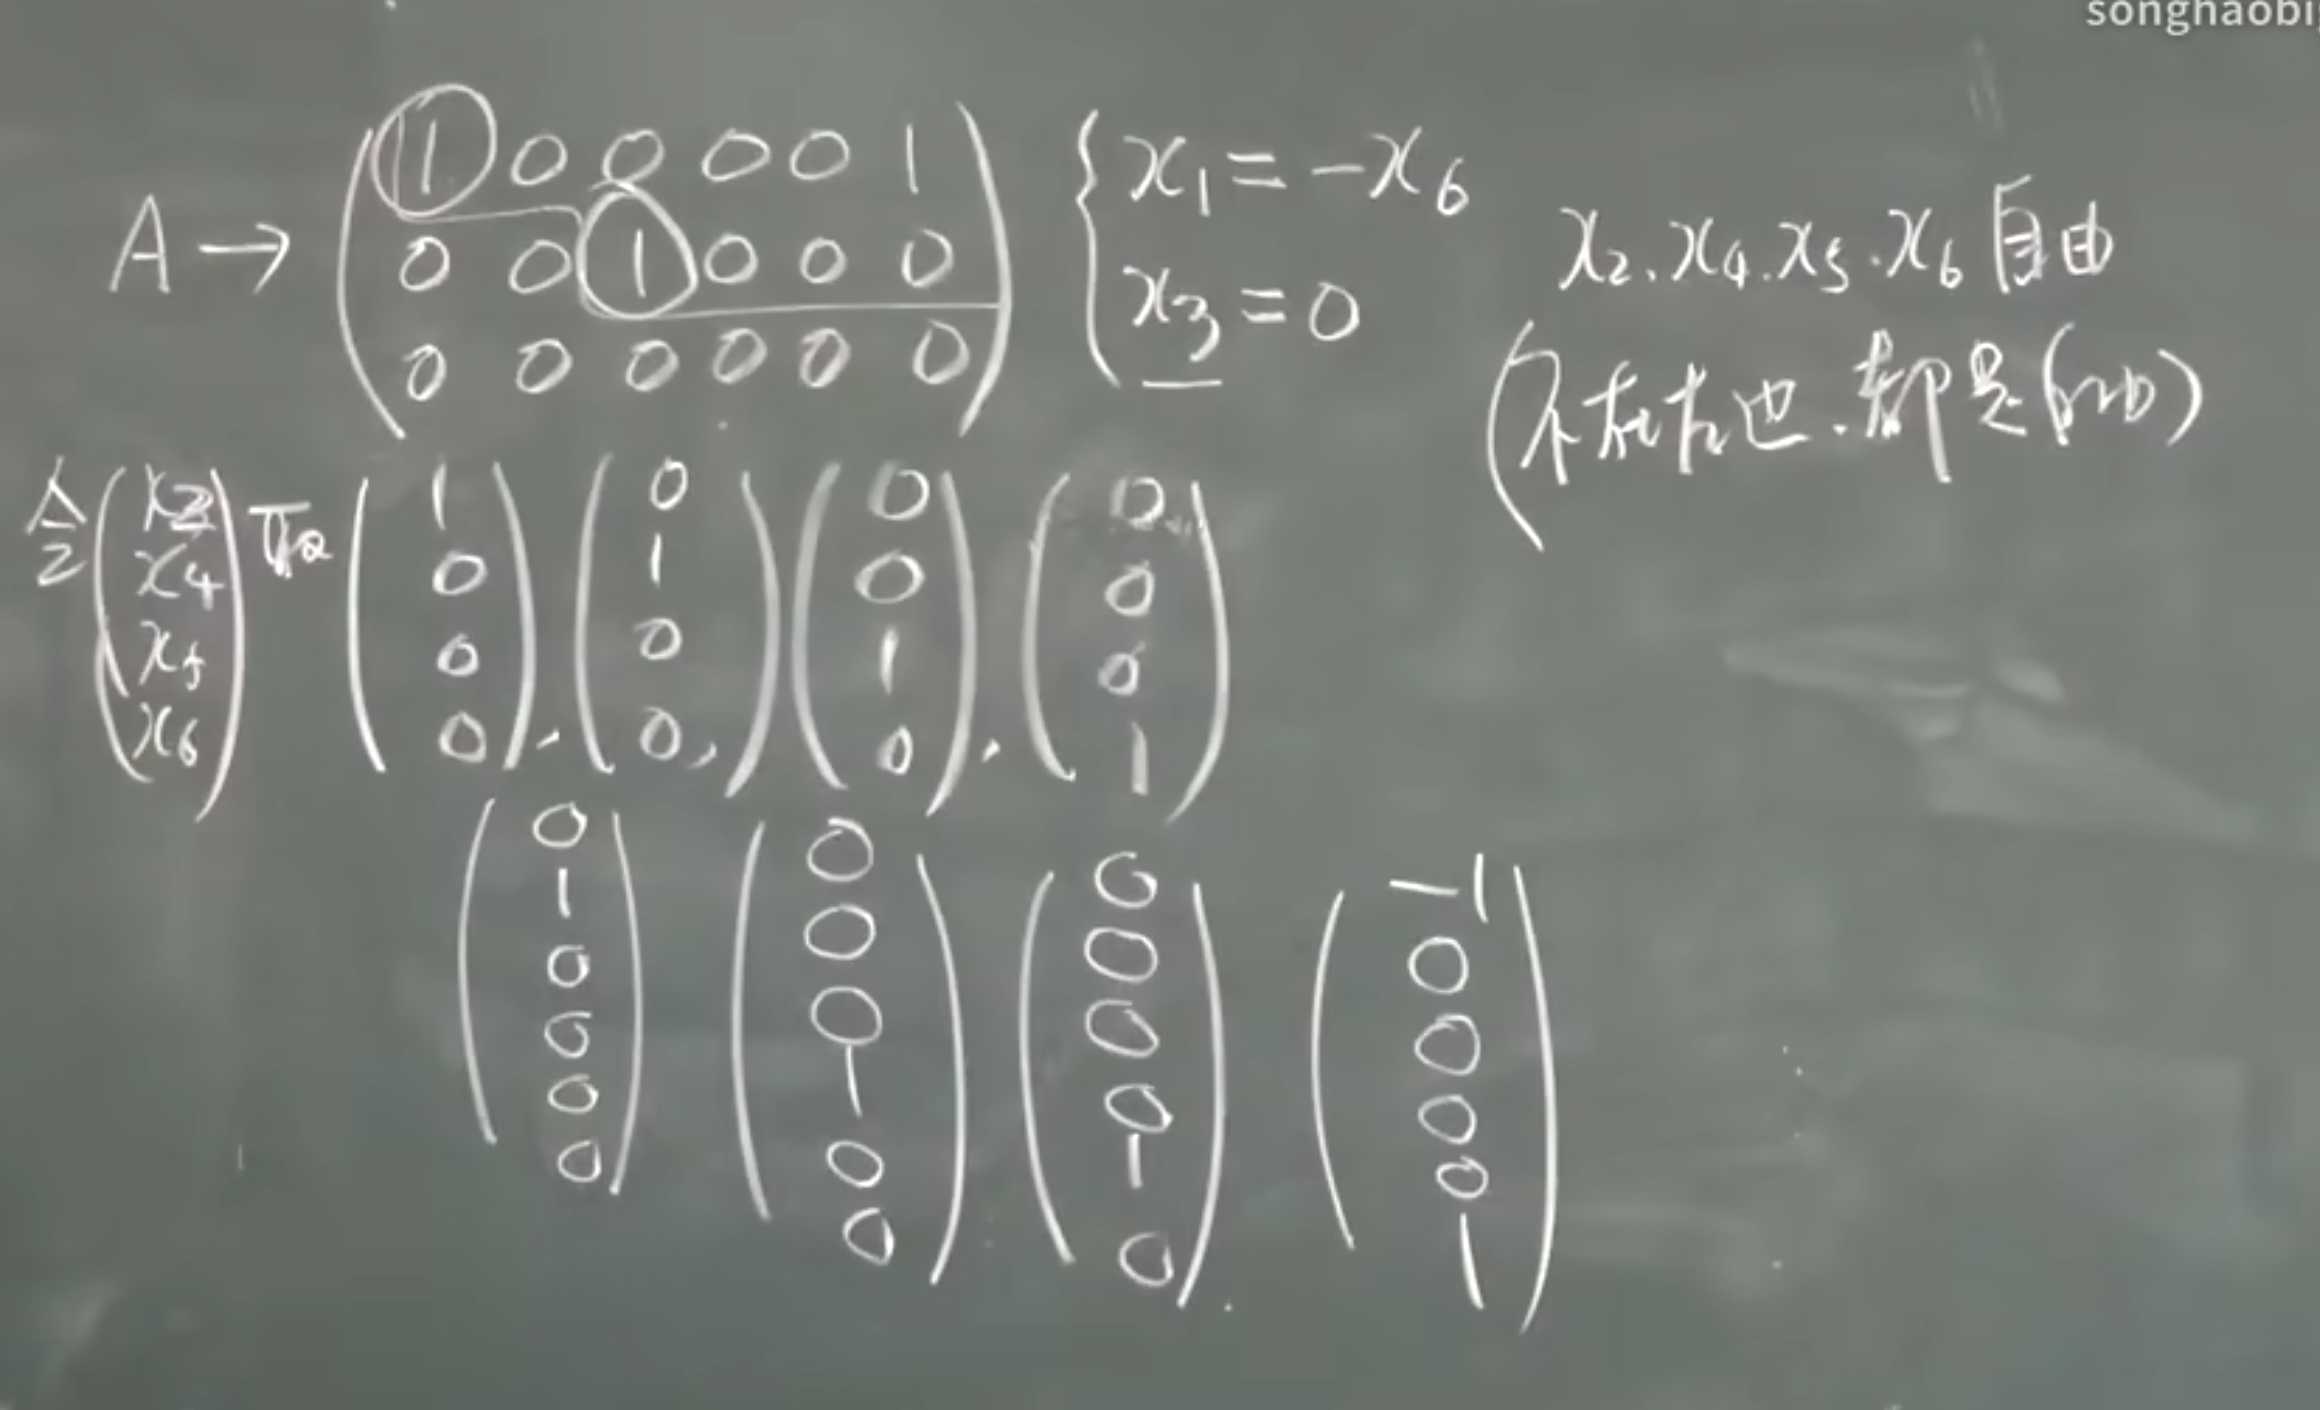 songhaobi
A → ( 1 0 0 0 0 1
0 0 1 0 0 0
0 0 0 0 0 0 )
{ x₁ = -x₆
x₃ = 0
x₂.x₄.x₅.x₆ 自由
(不在左边.都是自由)
令 (x₂ x₄ x₅ x₆) 取 (1 0 0 0), (0 1 0 0), (0 0 1 0), (0 0 0 1)
(0 1 0 0 0 0) (0 0 0 1 0 0) (0 0 0 0 1 0) (-1 0 0 0 0 1)